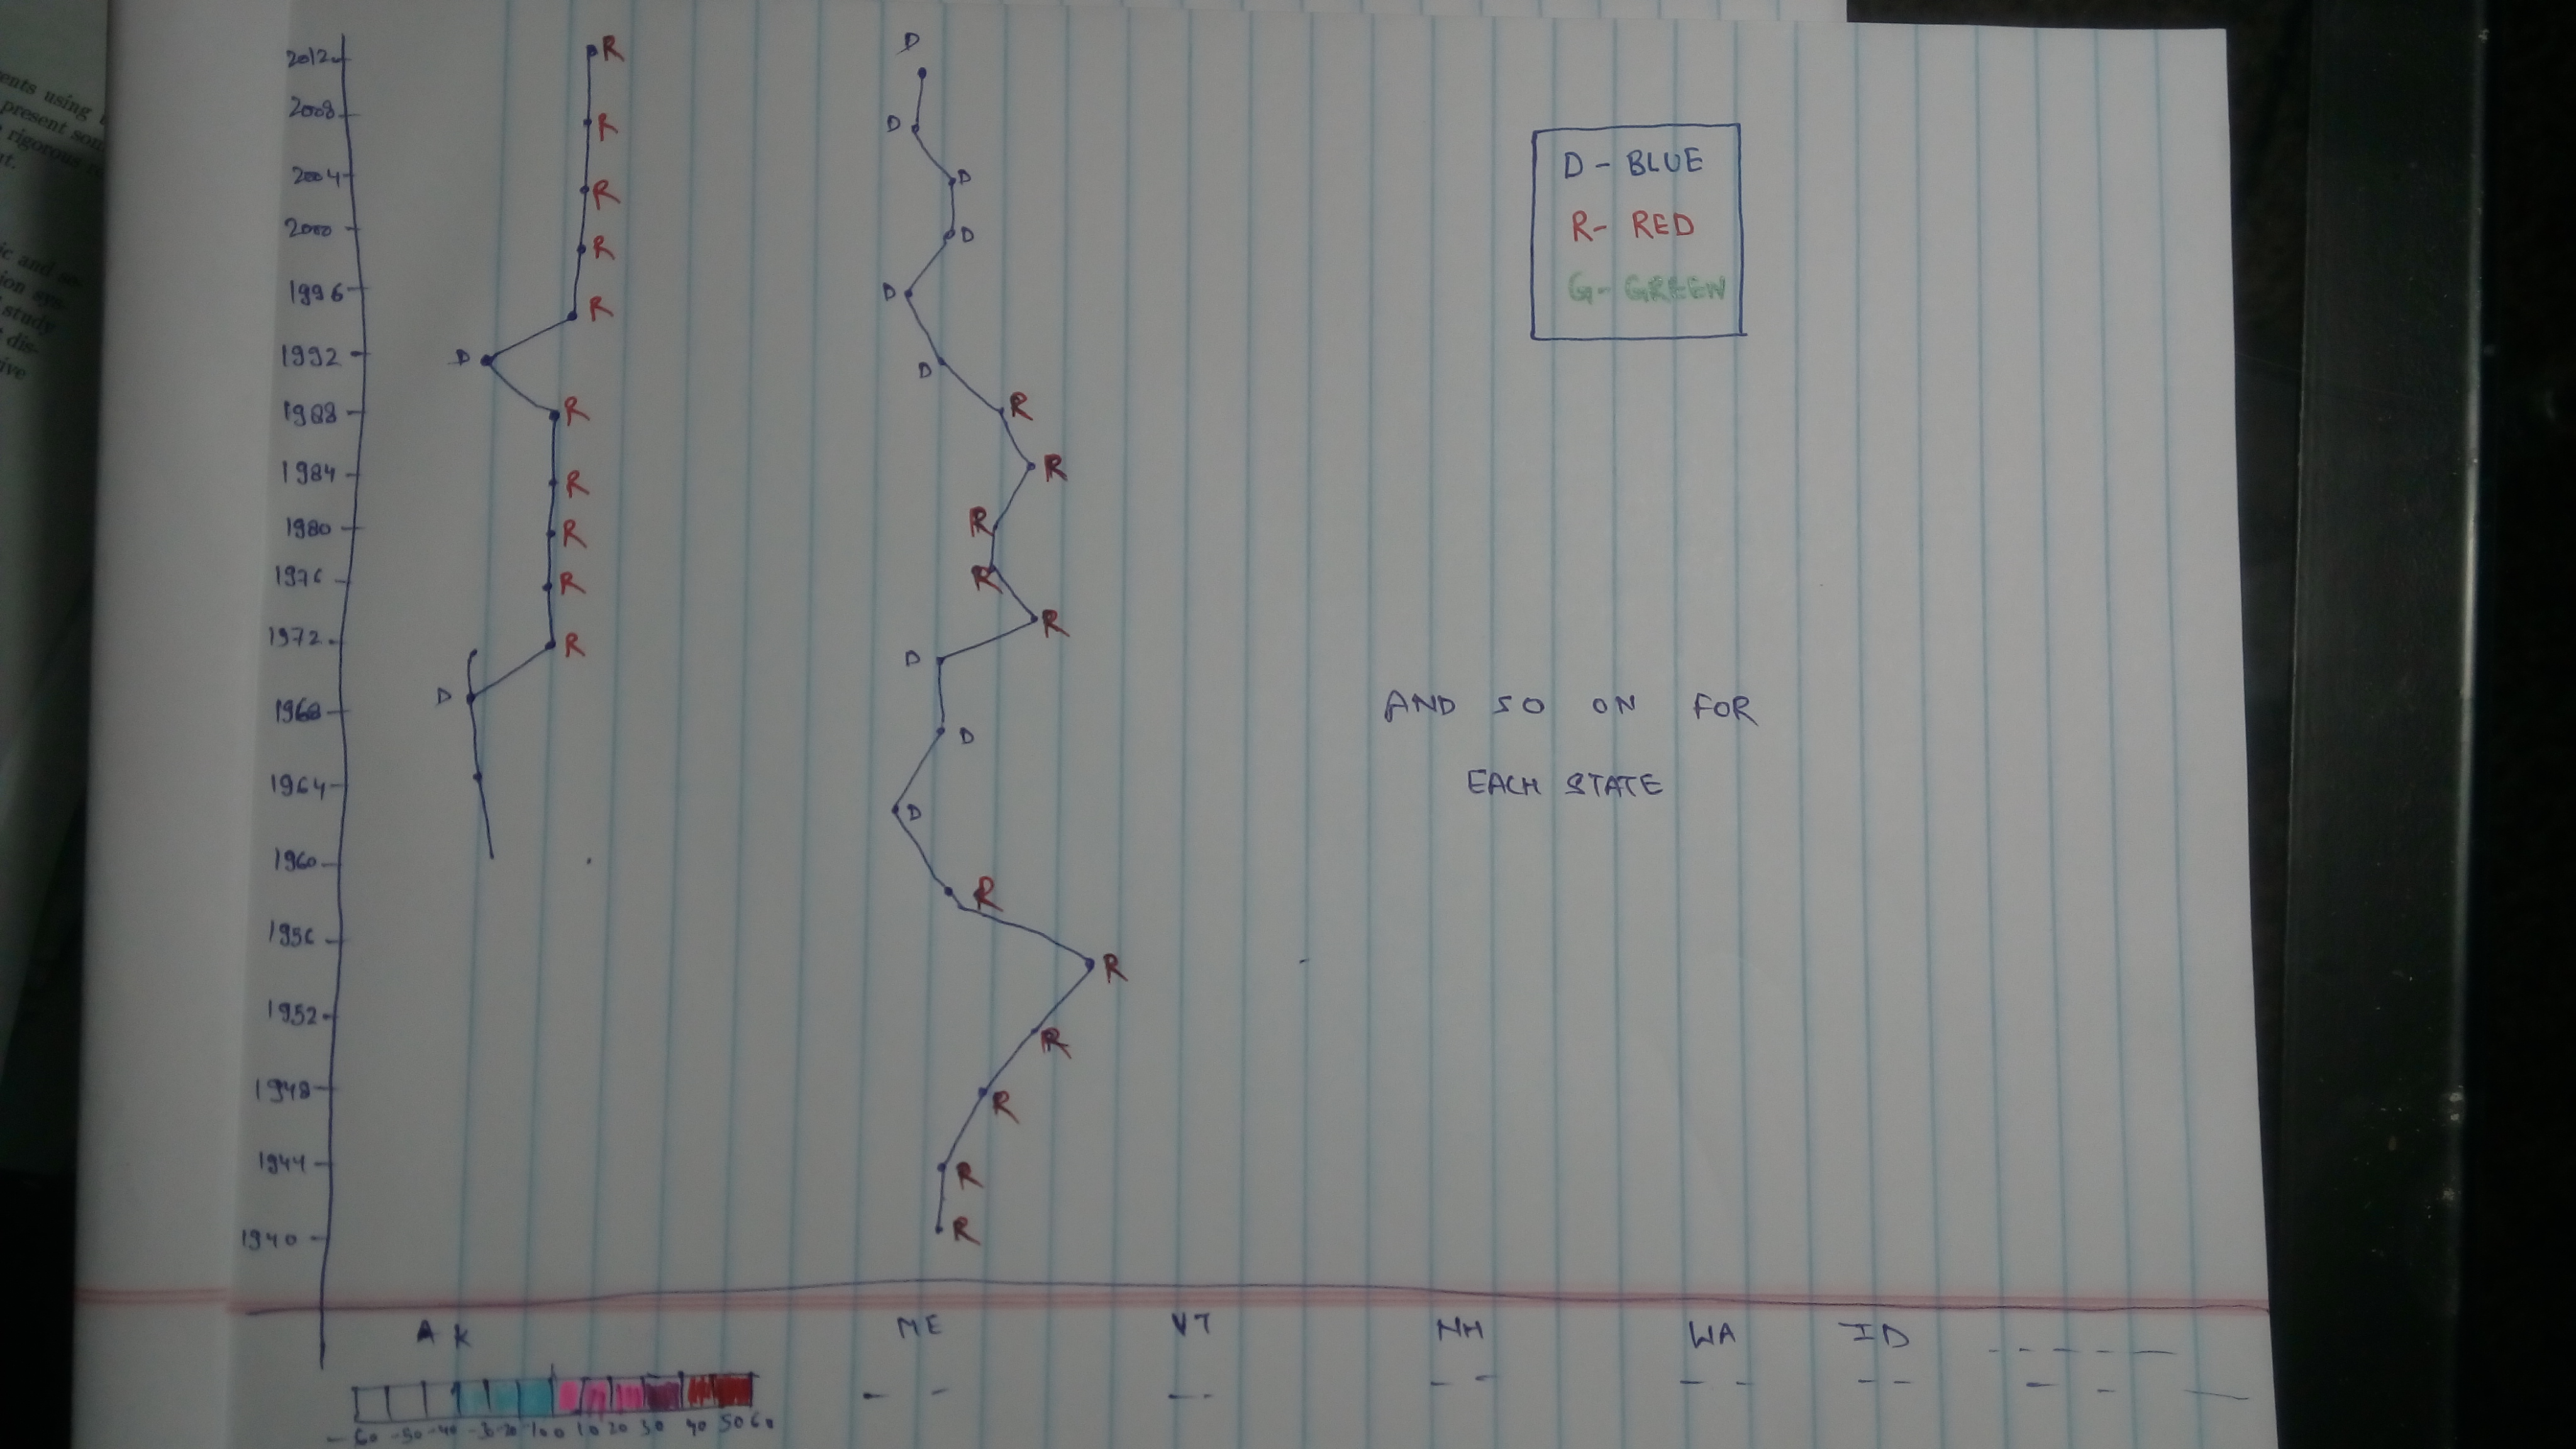 ents using
present som
rigorous
nt.
ic and se-
ion sys-
study
dis-
ive
2012
2008
2004
2000
1996
1992
1988
1984
1980
1976
1972
1968
1964
1960
1956
1952
1948
1944
1940
R
R
R
R
R
D
R
R
R
R
R
D
D
D
D
D
D
D
R
R
R
R
R
D
D
D
R
R
R
R
R
R
D - BLUE
R- RED
G- GREEN
AND SO ON FOR
EACH STATE
AK ME VT NH WA ID
-60 -50 -40 -30 -20 -10 0 10 20 30 40 50 60